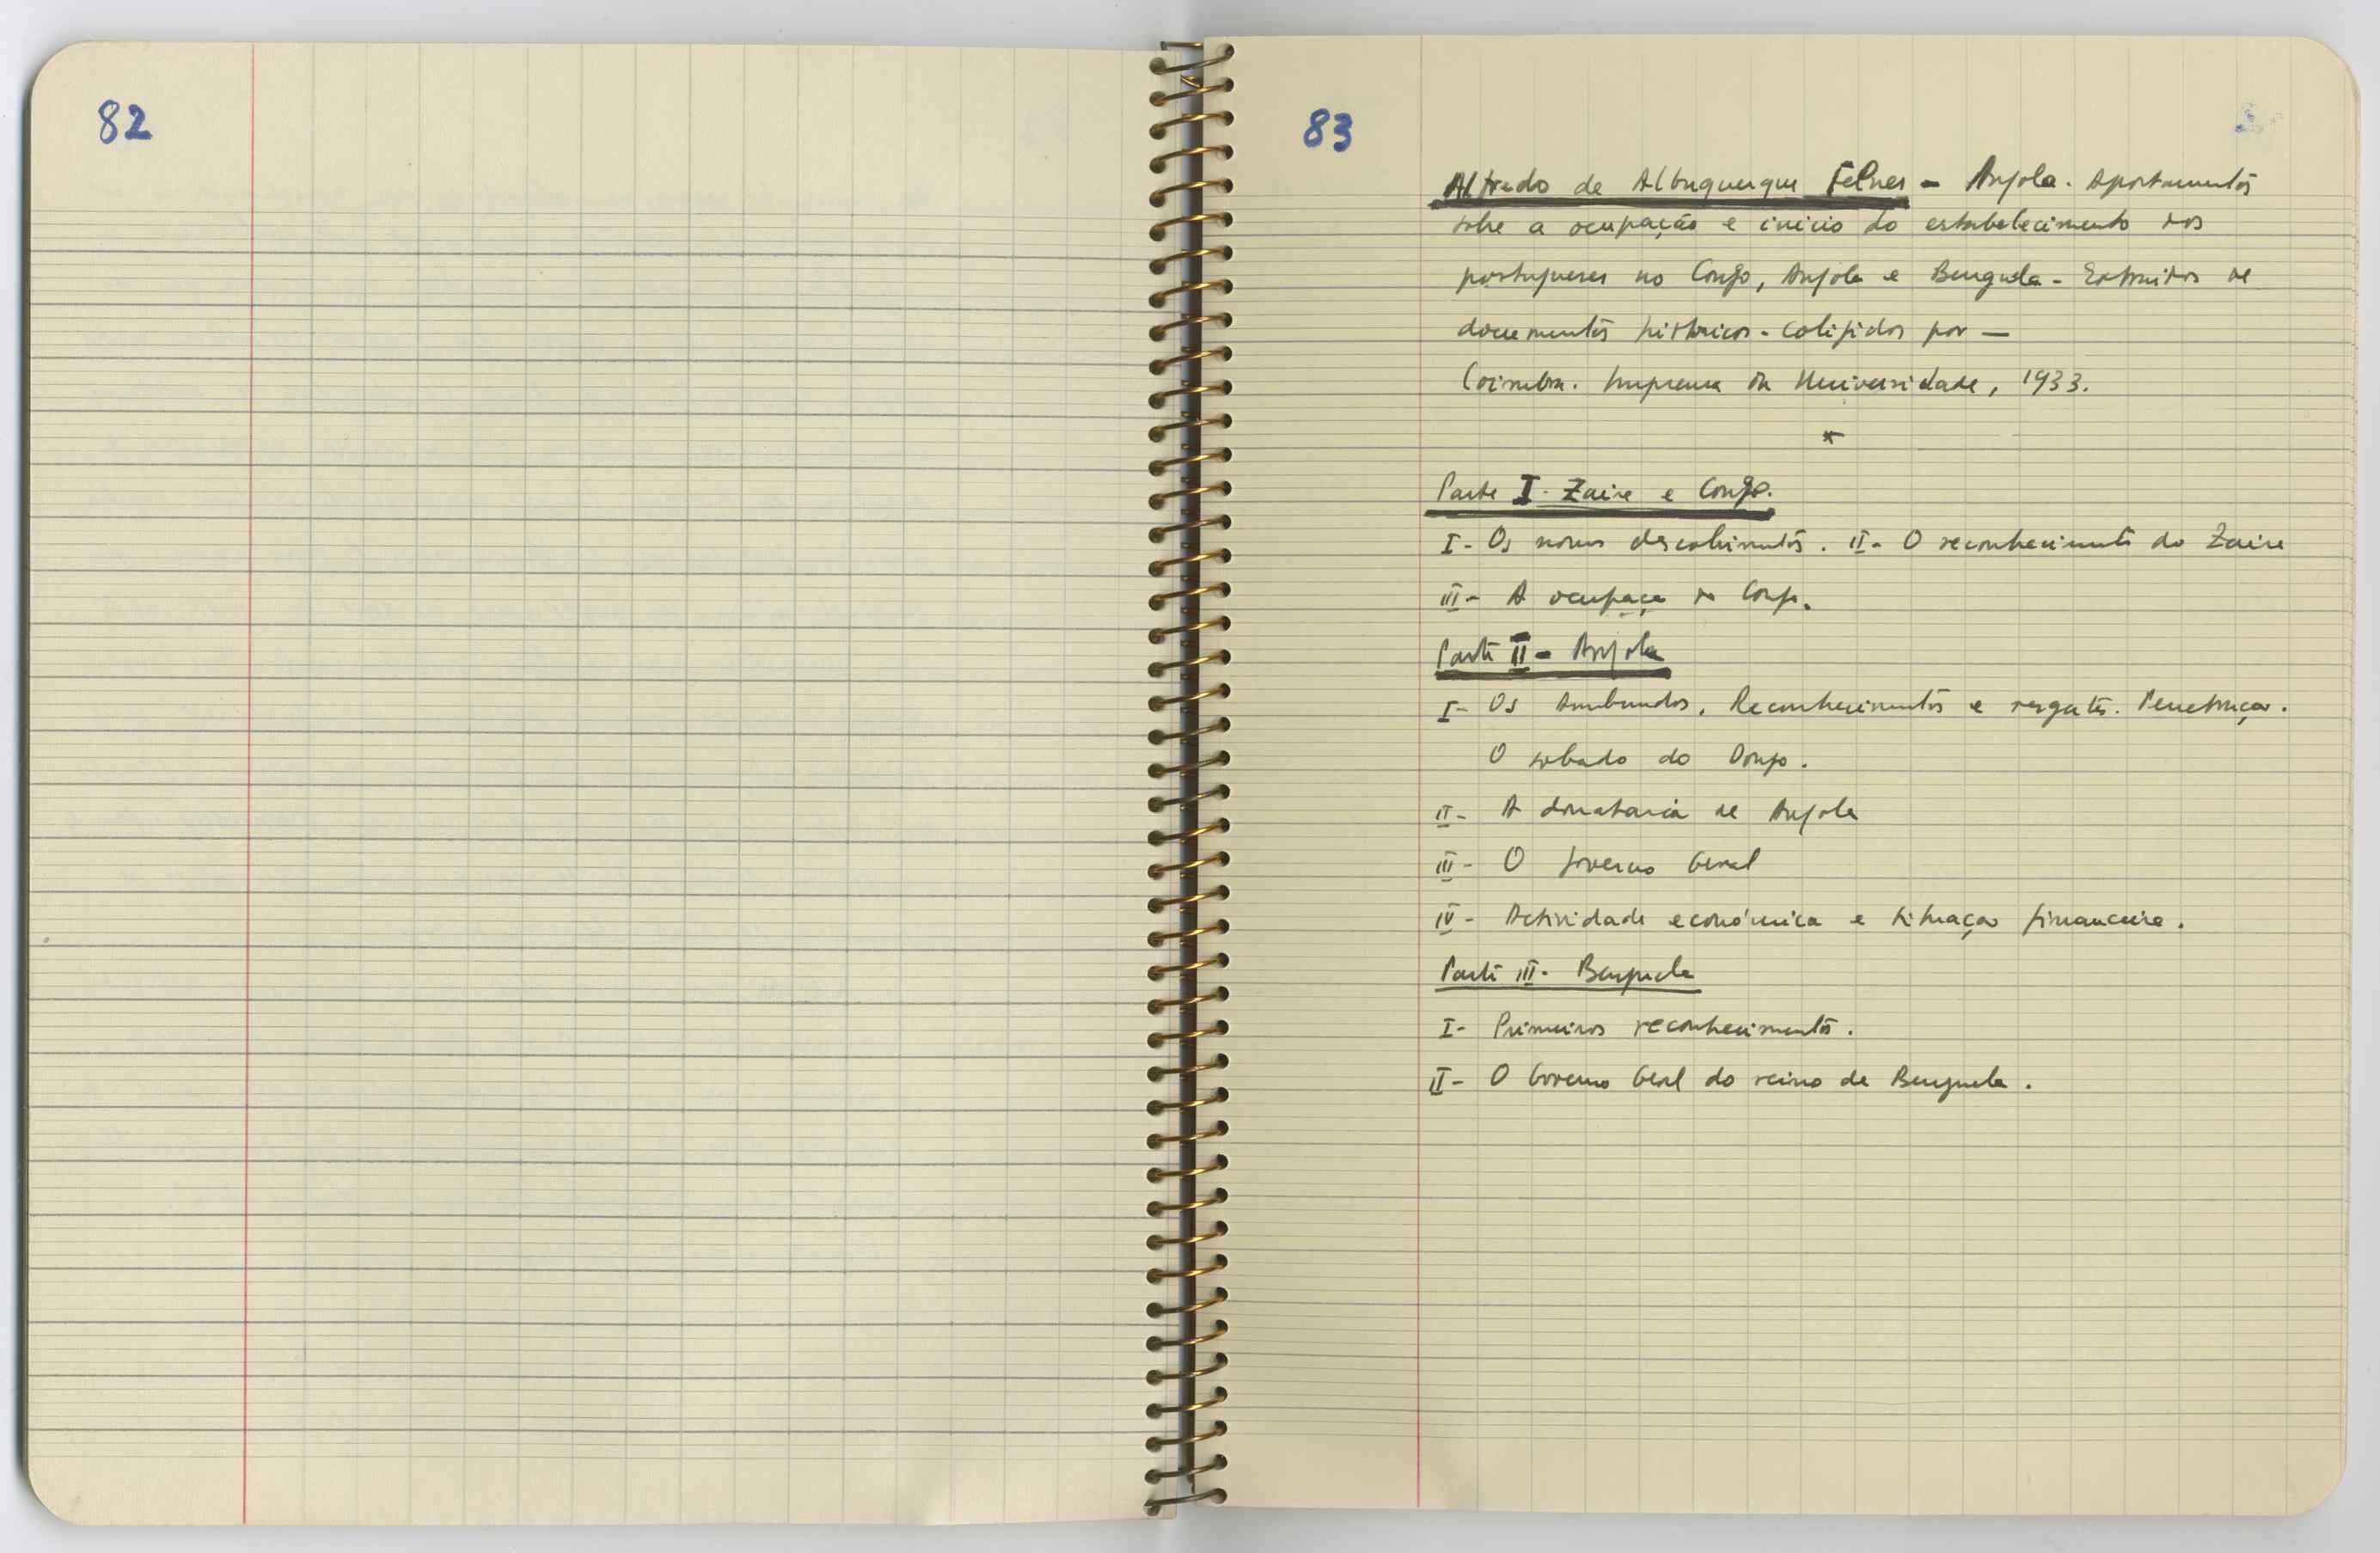 82
83
Alfredo de Albuquerque Felner - Angola. Apontamentos
sobre a ocupação e início do estabelecimento dos
portugueses no Congo, Angola e Benguela - Extraídos de
documentos históricos - coligidos por —
Coimbra. Imprensa da Universidade, 1933.
*
Parte I - Zaire e Congo.
I - Os novos descobrimentos. II - O reconhecimento do Zaire
III - A ocupaçe do Congo.
Parte II - Angola
I - Os Ambundos. Reconhecimentos e resgates. Penetraçao.
O sobado do Dongo.
II - A donataria de Angola
III - O Governo Geral
IV - Actividade económica e situaçao financeira.
Parte III - Benguela
I - Primeiros reconhecimentos.
II - O Governo Geral do reino de Benguela.